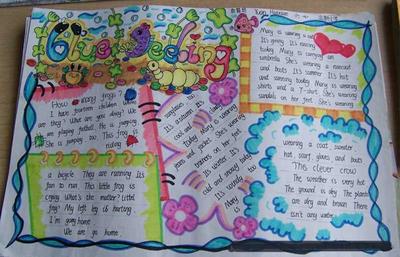 Blue feeling
How many frogs?
I have fourteen children
are they? What are you doing? We
are playing football. He is
She is jumping too. This frog is
riding
a bicycle. They are running. It's
fun to run. This little frog is
crying. What's the matter? Little
frog? My left leg is hurting
I'm going home
We are go home
sunglasses too
It's
cool and
Today Mary is wearing
jeans and jacket. She's wearing
on her feet
It's winter. It's
cold and snowy today
It's snowing too
Mary is
Mary is wearing a
It's spring. It's raining
today. Mary is carrying an
umbrella. She's wearing a raincoat
and boots. It's summer. It's hot
and sunning today. Mary is wearing
shorts and a T-shirt. She's wearing
sandals on her feet. She's wearing
wearing a coat, sweater
hat, scarf, gloves and boots
This clever crow
The weather is very hot
The ground is dry. The plants
are dry and brown. There
isn't any water